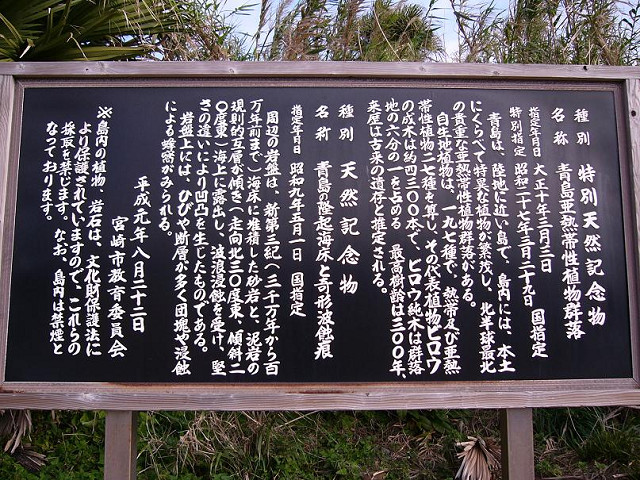 種別　特別天然記念物
名称　青島亜熱帯性植物群落
指定年月日　大正十年三月三日
特別指定　昭和二十七年三月二十九日　国指定
青島は、陸地に近い島で、島内には、本土
にくらべて特異な植物の繁茂し、北半球最北
の貴重な亜熱帯性植物群落がある。
自生地植物は、一九七種で、熱帯及び亜熱
帯性植物二七種を算し、その代表植物ビロウ
の成木は約四三〇〇本で、ビロウ純木は群落
地の六分の一を占める　最高樹齢は三〇〇年、
来歴は古来の遺存と推定される。
種別　天然記念物
名称　青島の隆起海床と奇形波蝕痕
指定年月日　昭和九年五月一日　国指定
周辺の岩盤は、新第三紀（三千万年から百
万年前まで）海床に堆積した砂岩と、泥岩の
規則的互層が傾き（走向北三〇度東、傾斜二
〇度東）海上に露出し、波浪浸蝕を受け、堅
さの違いにより凹凸を生じたものである。
岩盤上には、ひびや断層が多く団塊や浸蝕
による蜂窩がみられる。
平成元年八月二十二日
宮崎市教育委員会
※島内の植物、岩石は、文化財保護法に
より保護されていますので、これらの
採取を禁じます。なお、島内は禁煙と
なっております。